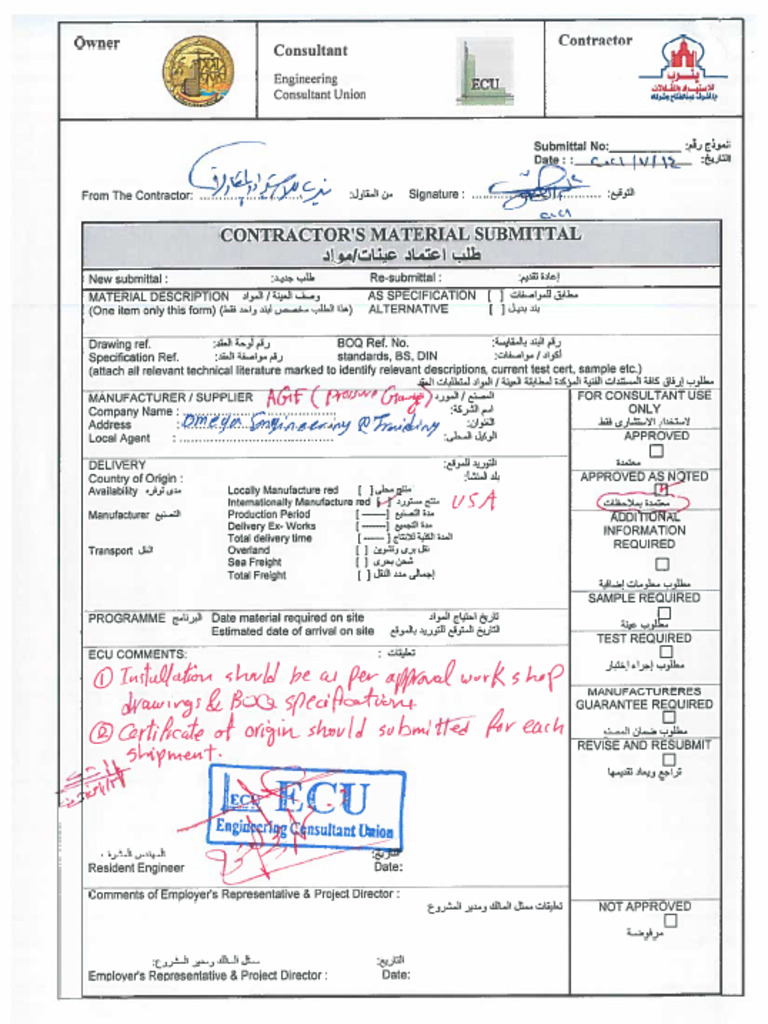 Owner
Consultant
Engineering
Consultant Union
ECU
Contractor
يثرب
للاستيراد والمقاولات
Submittal No: نموذج رقم:
Date : : ٢٠٢١/٧/١٤ التاريخ:
From The Contractor: من المقاول: Signature : التوقيع:
CONTRACTOR'S MATERIAL SUBMITTAL
طلب اعتماد عينات/مواد
New submittal : طلب جديد: Re-submittal : إعادة تقديم:
MATERIAL DESCRIPTION وصف العينة / المواد AS SPECIFICATION [ ] مطابق للمواصفات
(One item only this form) (هذا الطلب مخصص لبند واحد فقط) ALTERNATIVE [ ] بند بديل
Drawing ref. رقم لوحة العقد: BOQ Ref. No. رقم البند بالمقايسة:
Specification Ref. رقم مواصفة العقد: standards, BS, DIN أكواد / مواصفات:
(attach all relevant technical literature marked to identify relevant descriptions, current test cert, sample etc.)
مطلوب إرفاق كافة المستندات الفنية المؤكدة لمطابقة العينة / المواد لمتطلبات العقد
MANUFACTURER / SUPPLIER المصنع / المورد AGIF (Pressure Gauge)
Company Name : اسم الشركة:
Address : Omega Engineering & Trading العنوان:
Local Agent : الوكيل المحلى:
FOR CONSULTANT USE
ONLY
لاستخدام الاستشارى فقط
APPROVED
معتمدة
APPROVED AS NOTED
معتمدة بملاحظات
ADDITIONAL
INFORMATION
REQUIRED
مطلوب معلومات إضافية
SAMPLE REQUIRED
مطلوب عينة
TEST REQUIRED
مطلوب إجراء إختبار
MANUFACTURERES
GUARANTEE REQUIRED
مطلوب ضمان المصنع
REVISE AND RESUBMIT
تراجع ويعاد تقديمها
NOT APPROVED
مرفوضة
DELIVERY التوريد للموقع:
Country of Origin : بلد المنشأ:
Availability مدى توفره Locally Manufacture red [ ] منتج محلى
Internationally Manufacture red [✓] منتج مستورد USA
Manufacturer التصنيع Production Period [------] مدة التصنيع
Delivery Ex- Works [------] مدة التجميع
Total delivery time [------] المدة الكلية للانتاج
Transport النقل Overland [ ] نقل برى وتشوين
Sea Freight [ ] شحن بحرى
Total Freight [ ] إجمالى مدد النقل
PROGRAMME البرنامج Date material required on site تاريخ احتياج المواد
Estimated date of arrival on site التاريخ المتوقع للتوريد بالموقع
ECU COMMENTS: تعليقات :
① Installation should be as per approval work shop
drawings & BOQ specifications.
② Certificate of origin should submitted for each
shipment.
ECU ECU
Engineering Consultant Union
المهندس المشرف :
Resident Engineer
التاريخ:
Date:
Comments of Employer's Representative & Project Director :
تعليقات ممثل المالك ومدير المشروع
ممثل المالك ومدير المشروع:
Employer's Representative & Project Director :
التاريخ:
Date: